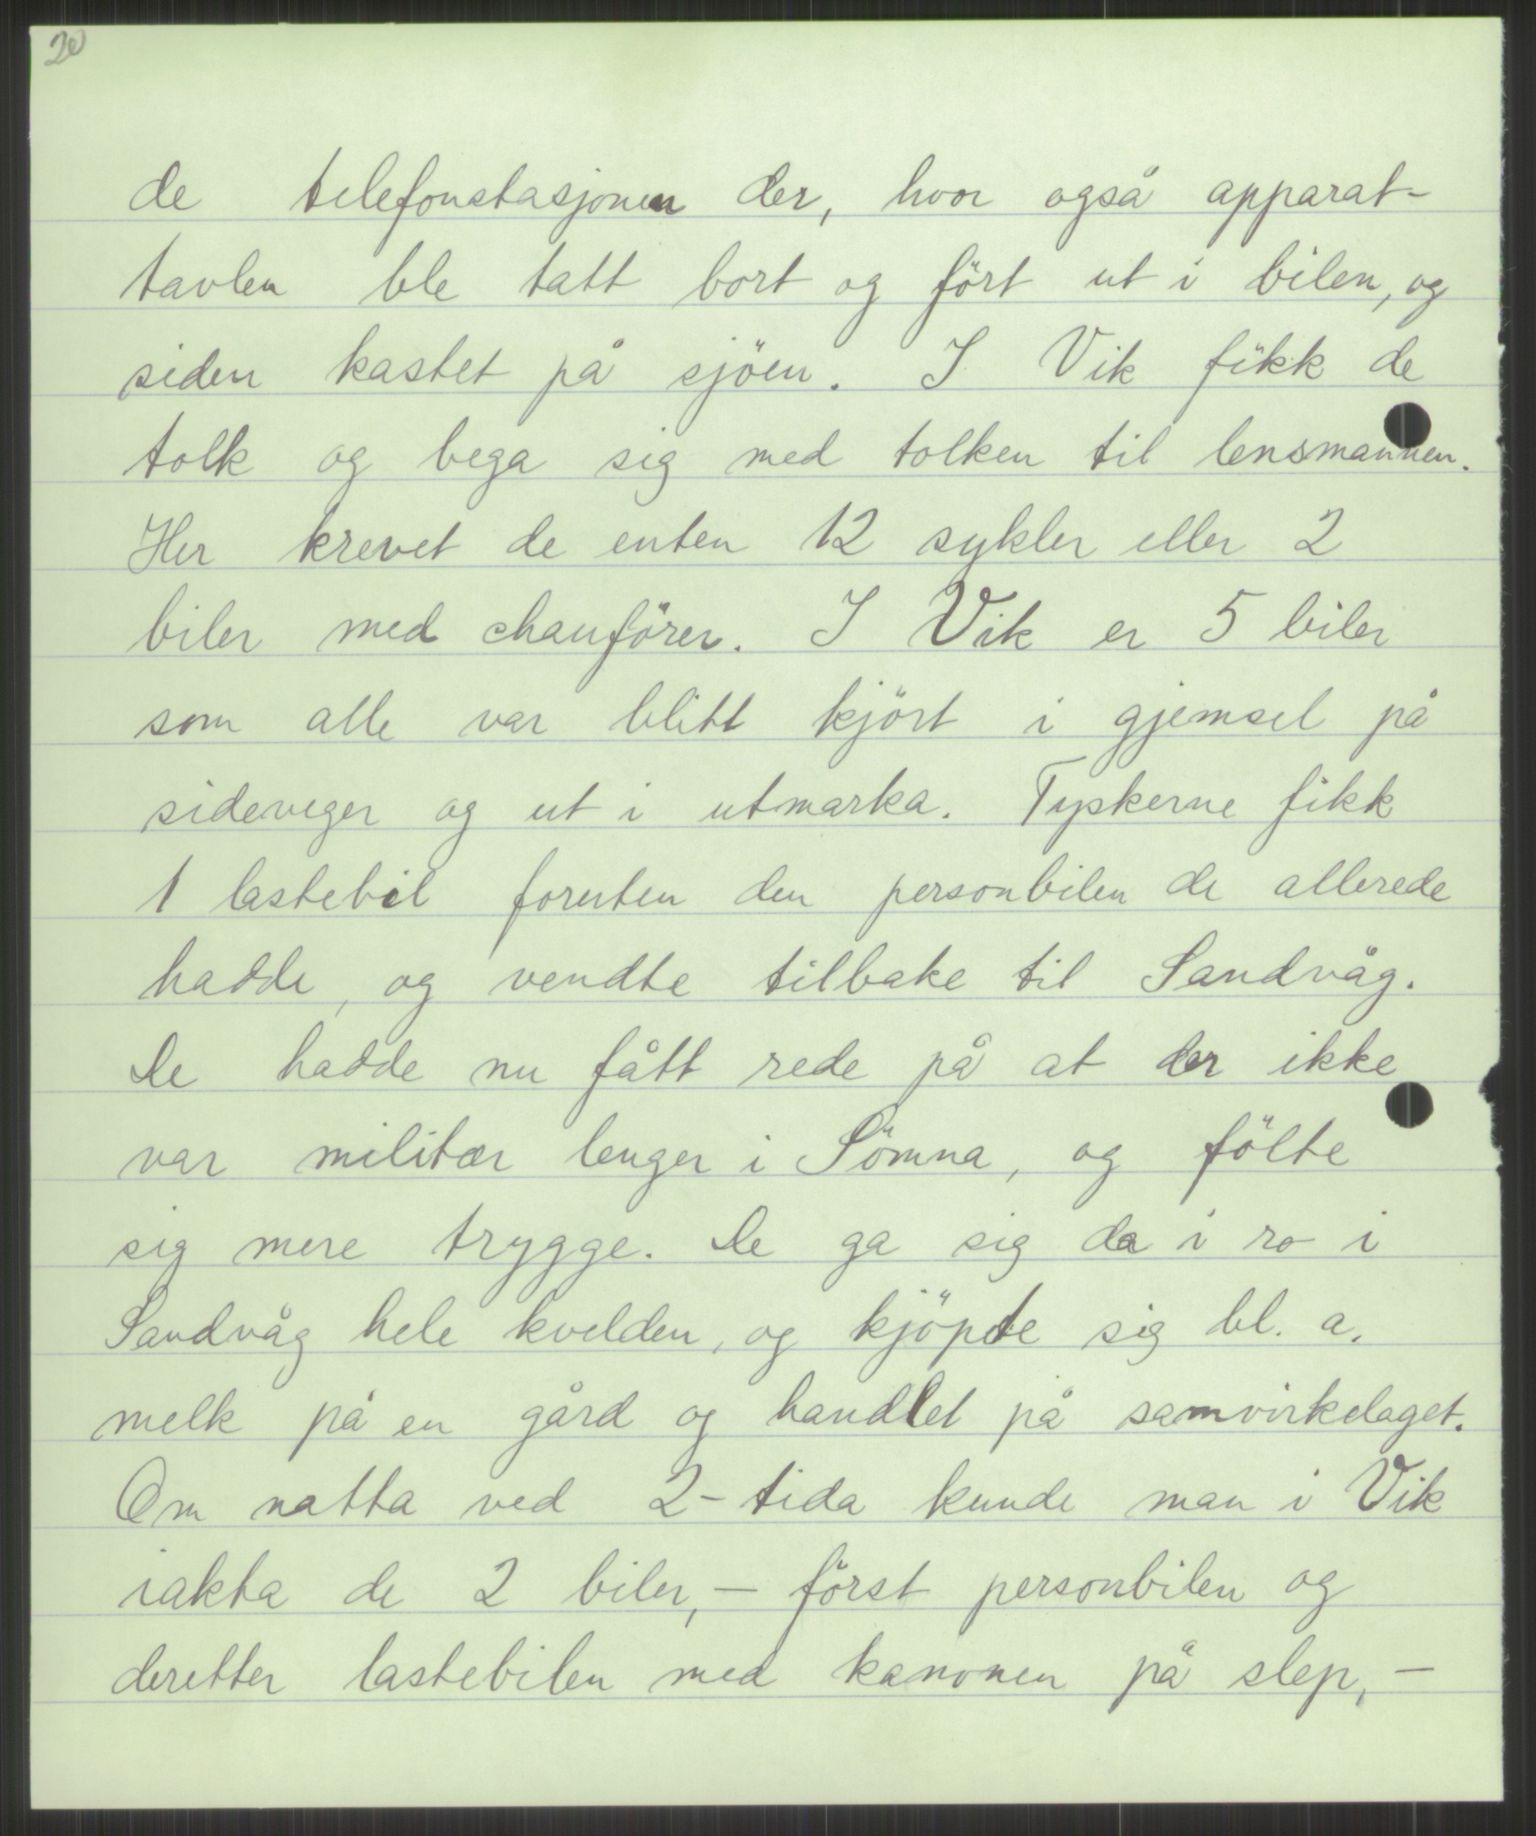 20
de telefonstasjonen der, hvor også apparat-
tavlen ble tatt bort og ført ut i bilen, og
siden kastet på sjöen. I Vik fikk de
tolk og bega sig med tolken til lensmannen.
Her krevet de enten 12 sykler eller 2
biler med chauförer. I Vik er 5 biler
som alle var blitt kjört i gjemsel på
sideveger og ut i utmarka. Tyskerne fikk
1 lastebil foruten den personbilen de allerede
hadde, og vendte tilbake til Sandvåg.
De hadde nu fått rede på at der ikke
var militær lenger i Sömna, og fölte
sig mere trygge. De ga sig da i ro i
Sandvåg hele kvelden, og kjöpte sig bl. a.
melk på en gård og handlet på samvirkelaget.
Om natta ved 2-tida kunde man i Vik
iakta de 2 biler, - först personbilen og
deretter lastebilen med kanonen på slep, -